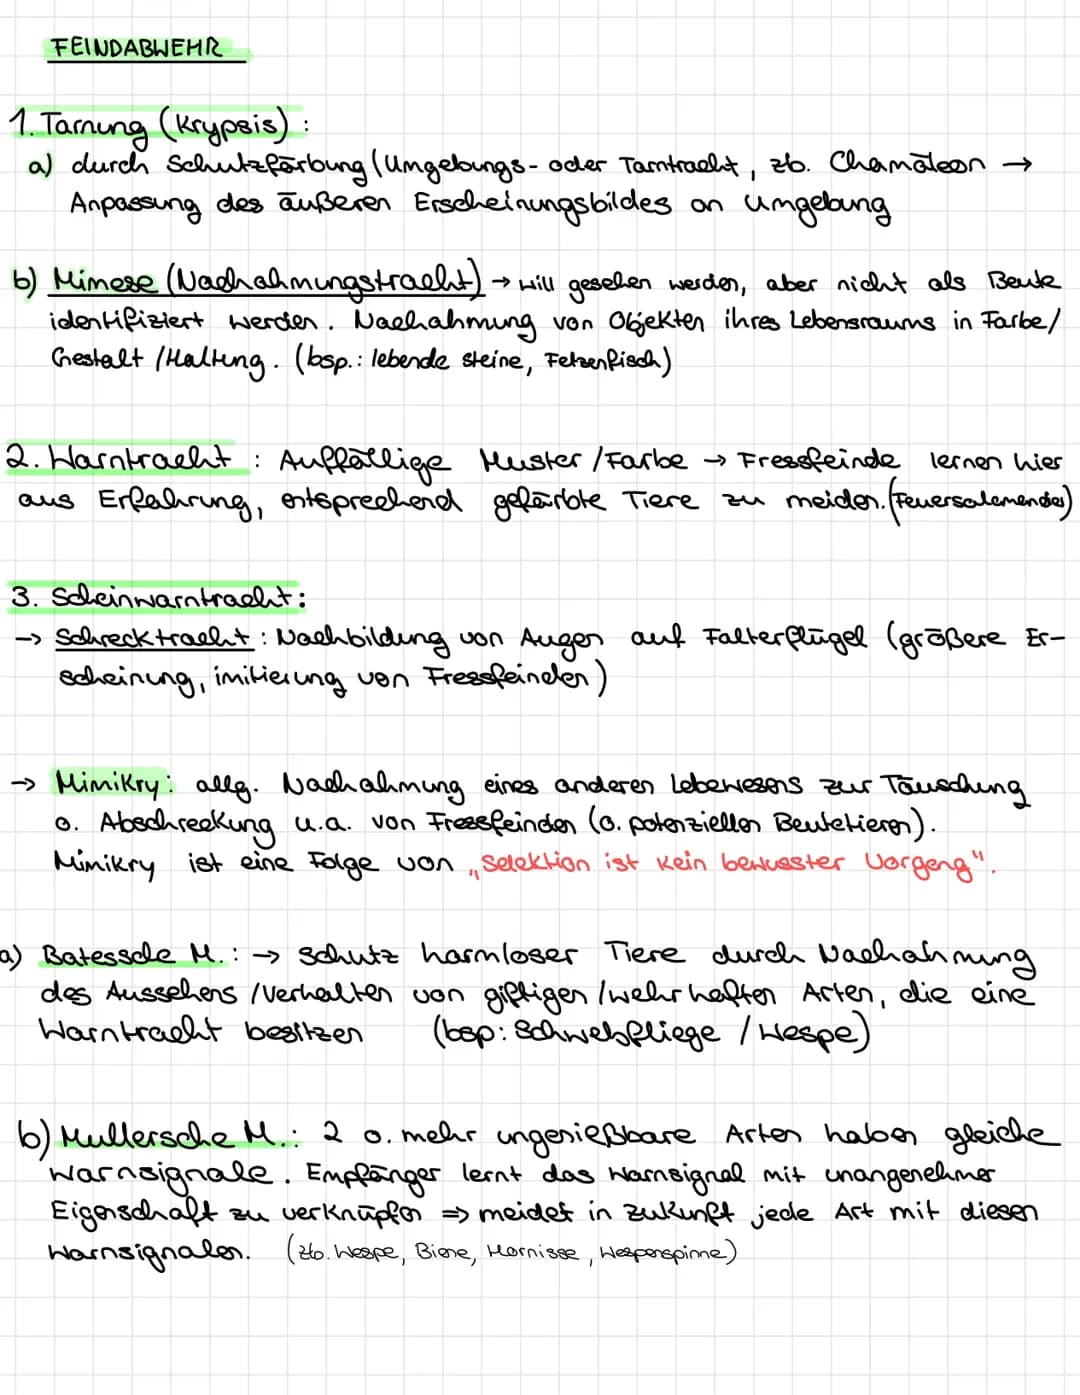 FEINDABWEHR
1. Tarnung (Krypsis) :
a) durch Schutzfärbung (Umgebungs- oder Tarntracht, zb. Chamäleon →
Anpassung des äußeren Erscheinungsbildes an Umgebung
b) Mimese (Nachahmungstracht) → will gesehen werden, aber nicht als Beute
identifiziert werden. Nachahmung von Objekten ihres Lebensraums in Farbe/
Gestalt /Haltung. (bsp.: lebende steine, Fetzenfisch)
2. Warntracht : Auffällige Muster /Farbe → Fressfeinde lernen hier
aus Erfahrung, entsprechend gefärbte Tiere zu meiden. (Feuersalamander)
3. Scheinwarntracht:
→ Schrecktracht : Nachbildung von Augen auf Falterflügel (größere Er-
scheinung, imitierung von Fressfeinden)
→ Mimikry: allg. Nachahmung eines anderen Lebewesens zur Täuschung
o. Abschreckung u.a. von Fressfeinden (o. potenziellen Beutetieren).
Mimikry ist eine Folge von „Selektion ist kein bewusster Vorgang".
a) Batessche M.: → Schutz harmloser Tiere durch Nachahmung
des Aussehens /Verhalten von giftigen /wehrhaften Arten, die eine
Warntracht besitzen (bsp: Schwebfliege / Wespe)
b) Mullersche M.: 2 o. mehr ungenießbare Arten haben gleiche
Warnsignale. Empfänger lernt das Warnsignal mit unangenehmer
Eigenschaft zu verknüpfen ⇒ meidet in Zukunft jede Art mit diesen
Warnsignalen. (zb. Wespe, Biene, Hornisse, Wespenspinne)